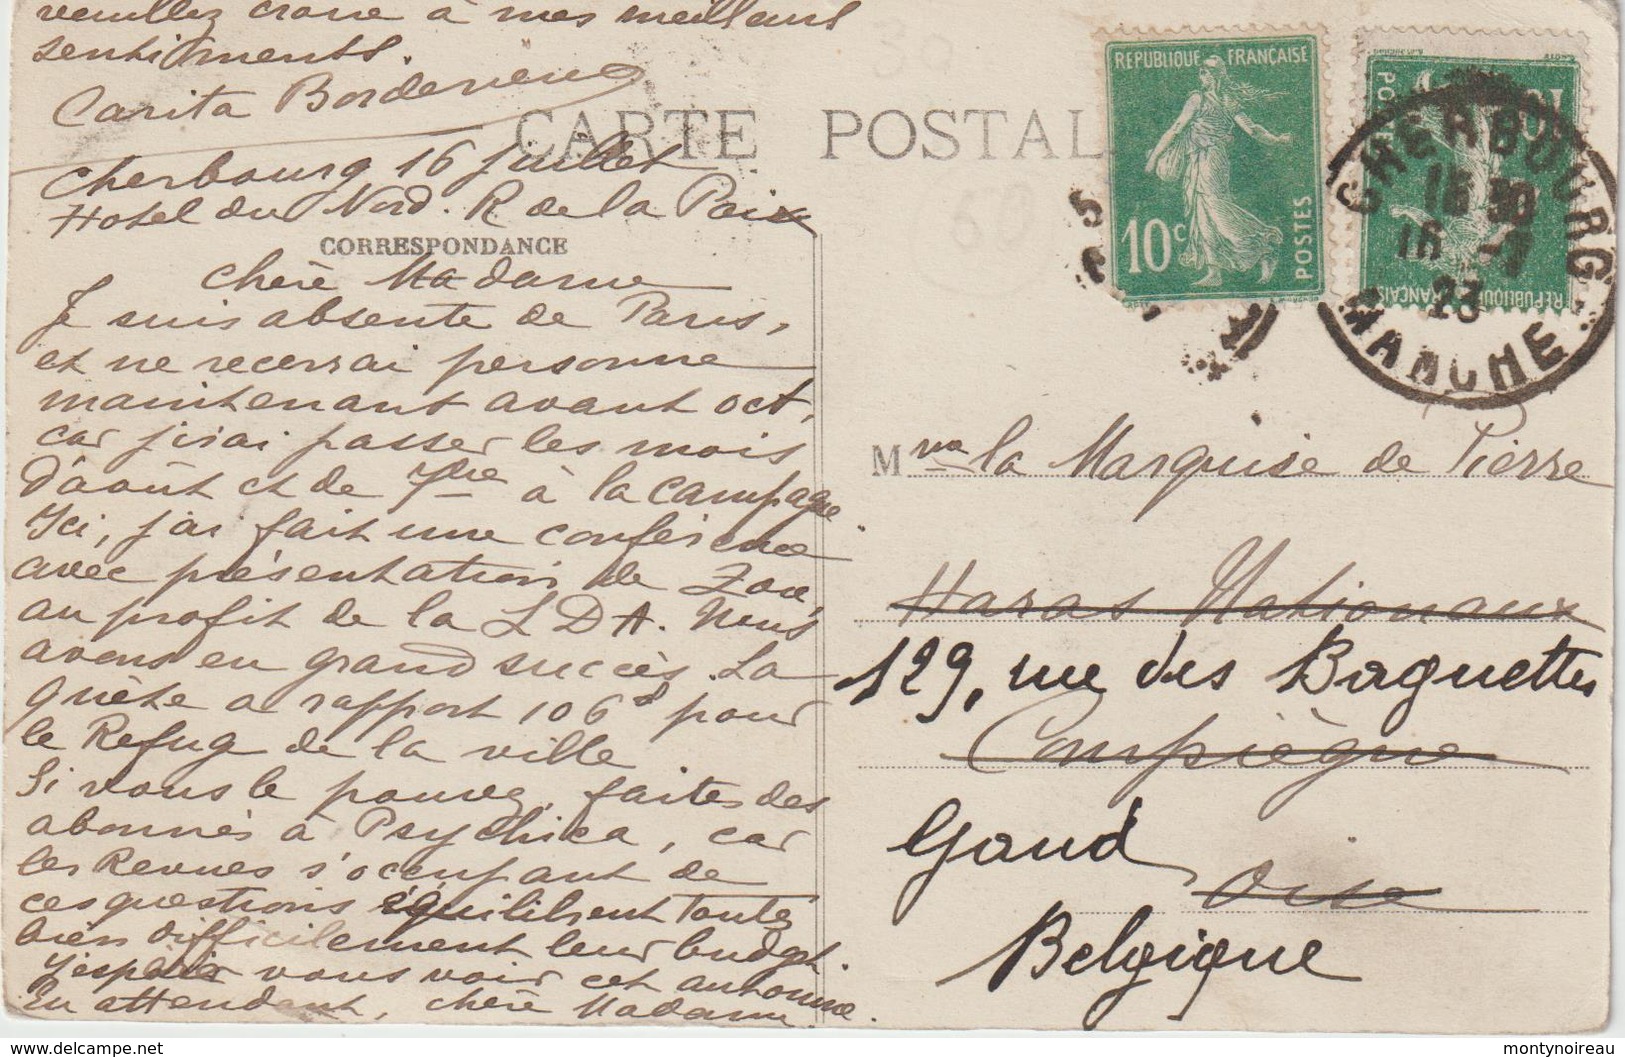 veuillez croire à mes meilleurs
sentiments.
Carita Borderieux
CARTE POSTAL
Cherbourg 16 juillet
Hotel du Nord. R de la Paix
CORRESPONDANCE
Chère Madame
Je suis absente de Paris,
et ne recevrai personne
maintenant avant oct,
car j'irai passer les mois
d'août et de 7bre à la campagne.
Ici, j'ai fait une conférence
avec présentation de Zou,
au profit de la L D A. Nous
avons eu grand succès. La
quète a rapport 106 pour
le Refug de la ville
Si vous le pouvez, faites des
abonnés à Psychica, car
les Revues s'occupant de
ces questions équilibrent toutes
bien difficilement leur budget.
J'espère vous voir cet automne.
En attendant, chère Madame
REPUBLIQUE FRANÇAISE
10c
POSTES
REPUBLIQUE FRANÇAISE
10
CHERBOURG
16 30
16 -7
23
MANCHE
Mme la Marquise de Pierre
Haras Nationaux
129, rue des Baguettes
Compiègne
Gand
Oise
Belgique
delcampe.net
montynoireau